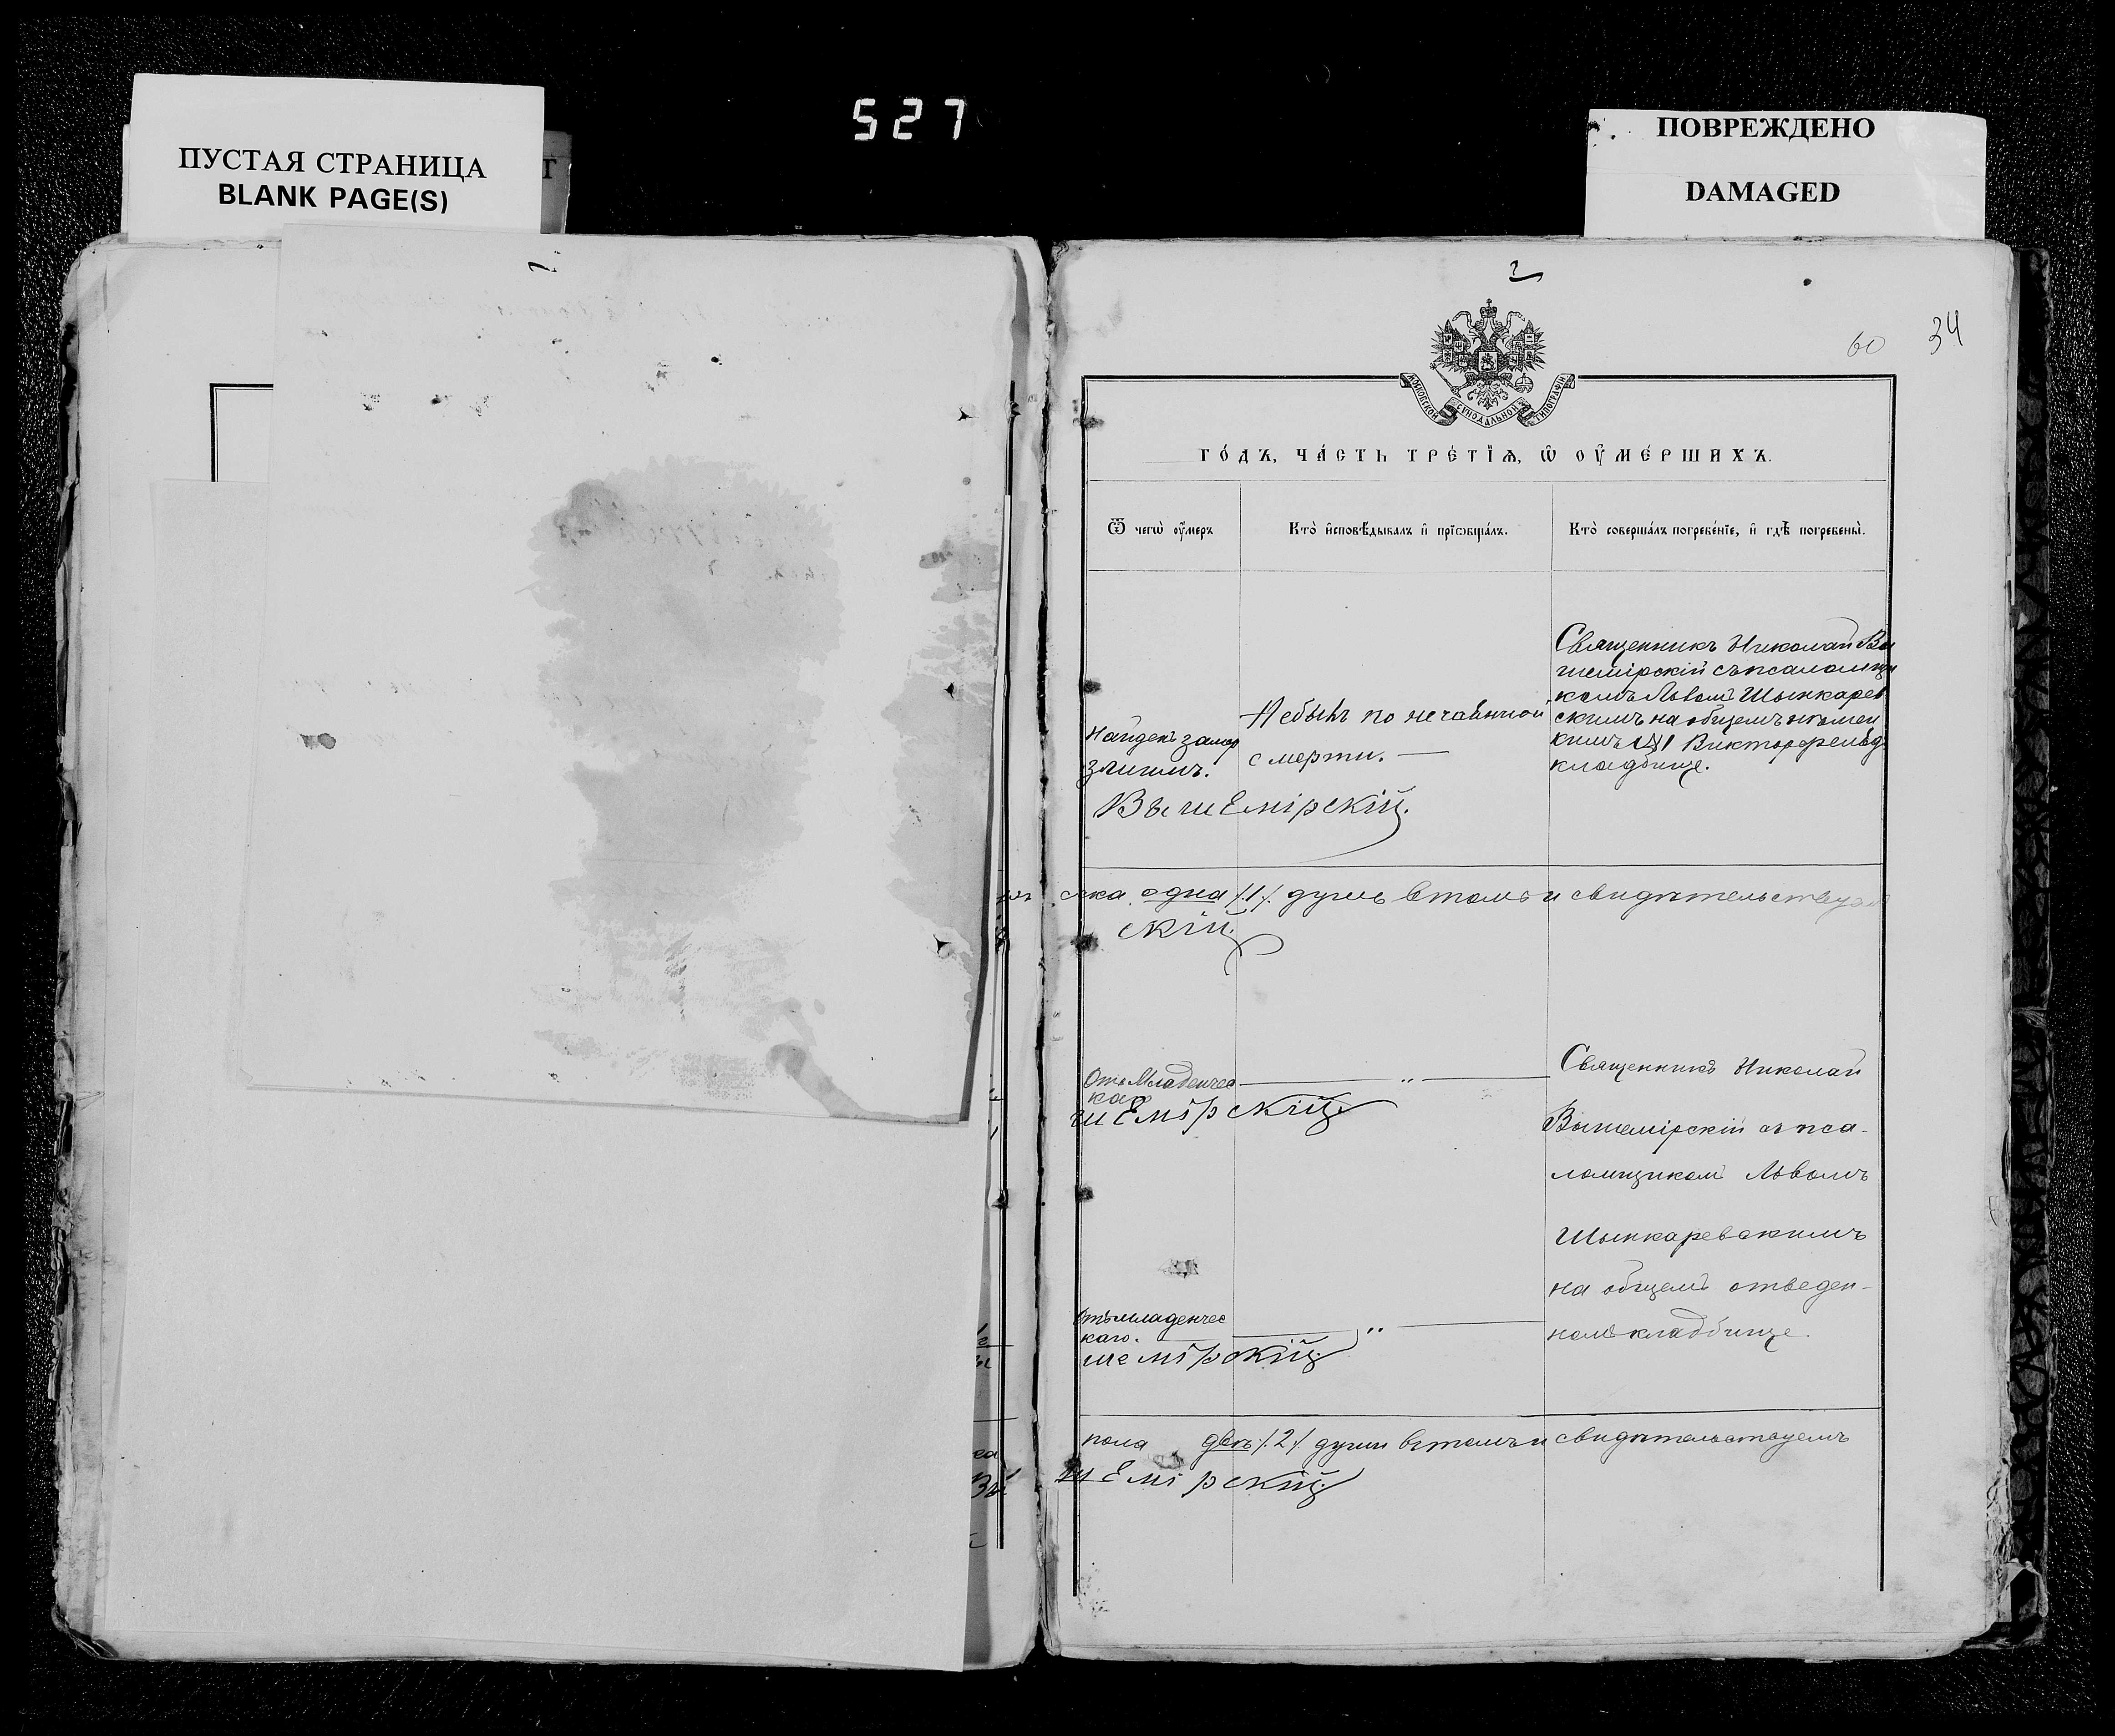 527
ПУСТАЯ СТРАНИЦА
BLANK PAGE(S)
ПОВРЕЖДЕНО
DAMAGED
2
60 34
МОСКОВСКОЙ СѴНОДАЛЬНОЙ ТИПОГРАФІИ
ГО́ДЪ, ЧА́СТЬ ТРЕ́ТЇѦ, Ѡ҆ ОУ҆МЕ́РШИХЪ.
Ѿ чегѡ̀ оу҆́меръ
Кто̀ и҆сповѣ́дывалъ и҆ прїѡбща́лъ.
Кто̀ соверша́лъ погребе́нїе, и҆ гдѣ̀ погребены̀.
Найденъ замер
зшимъ.
Небылъ по нечаянной
смерти. —
Священникъ Николай Вы
шемірскій съ псаломщи
комъ Львомъ Шынкарев
скимъ на общемъ
Викторфельд
кладбище.
Вышемірскій.
ска одна /.1/. душъ втомъ и свидѣтельствуемъ
скій.
Отъ Младенчес
каго
— „ —
шемірскій
Священникъ Николай
Вышемірскій съ пса-
ломщикомъ Львомъ
Шынкаревскимъ
на общемъ отведен-
номъ кладбище.
Отъ младенчес
каго.
— „ —
шемірскій
пола двѣ /.2/. души втомъ и свидѣтельствуемъ
шемірскій